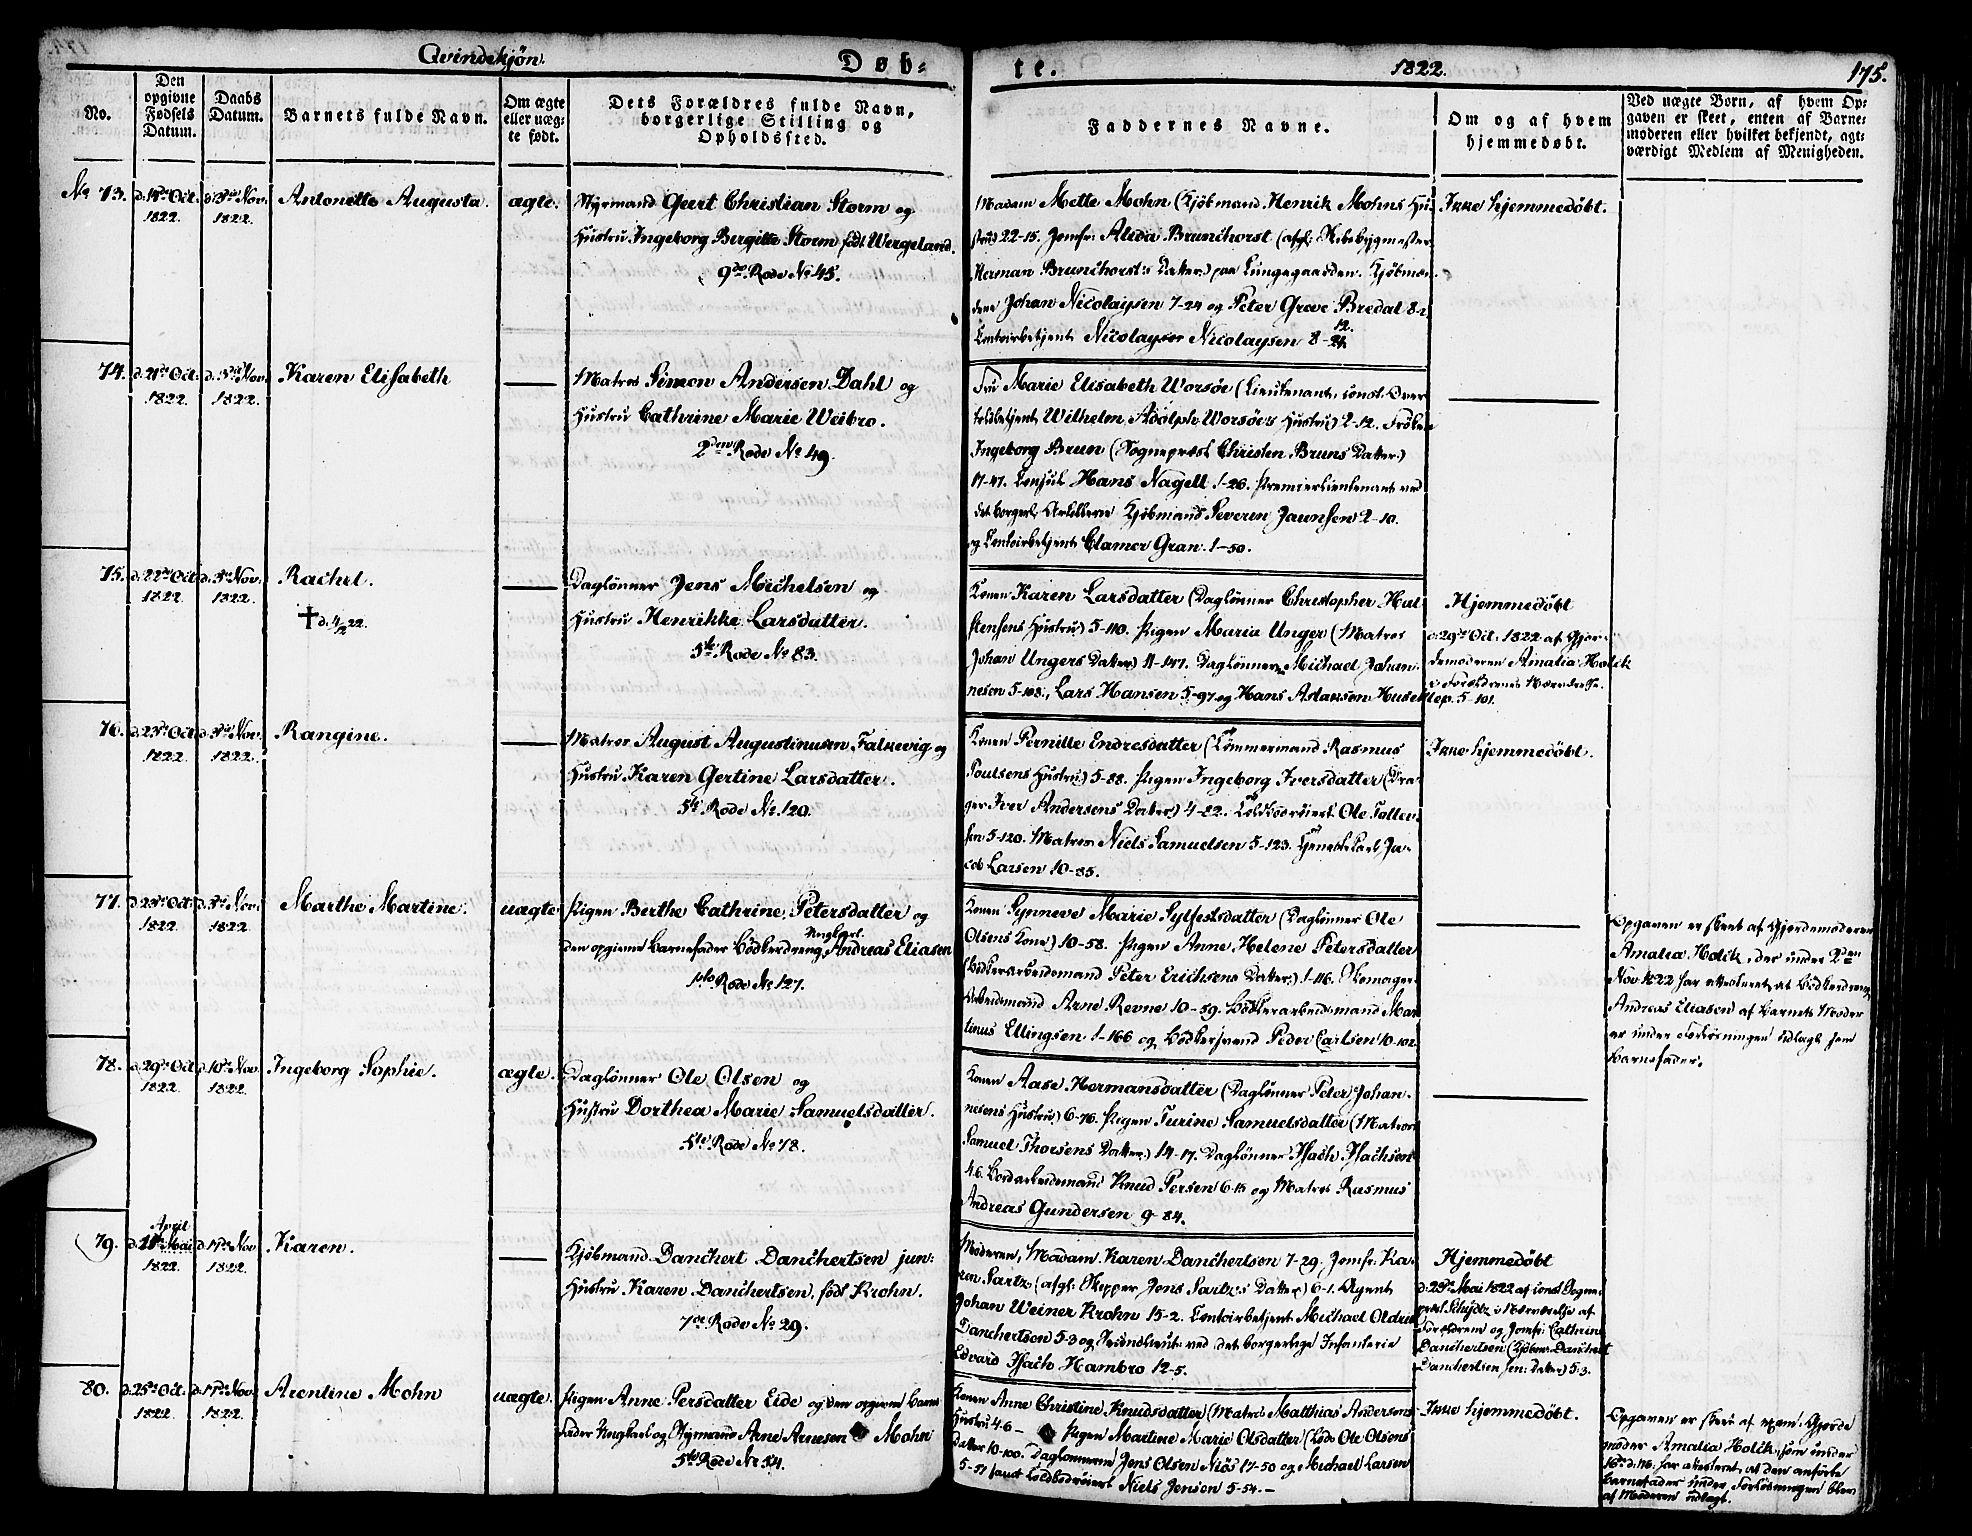 Qvindekjøn.
Døb-
te.
1822.
175.
No.
Den opgivne Fødsels Datum.
Daabs Datum.
Barnets fulde Navn.
Om ægte eller uægte født.
Dets Forældres fulde Navn, borgerlige Stilling og Opholdssted.
Faddernes Navne.
Om og af hvem hjemmedøbt.
Ved uægte Børn, af hvem Opgaven er skeet, enten af Barnemoderen eller hvilket bekjendt, agtværdigt Medlem af Menigheden.
No 73.
1822.
1822.
Antonette Augusta.
ægte.
Styrmand Gert Christian Storm og
Hustru Ingeborg Bergitte Storm født Wergeland.
9de Rode No 45.
Madam Mette Mohn (Kjøbmand Henrik Mohns Hu-
stru) 22-15. Jomfr. Aleda Brunchorst (afgl: Skibsbygmester
Herman Brunchorst's Datter) paa Lungegaarden. Kjøbmæn-
dene Johan Nicolaysen 7-24 og Peter Greve Bredal 8-
12.
Contoirbetjent Nicolay Nicolaysen 8-24.
Ikke hjemmedøbt.
74.
d. 21de Oct.
1822.
1822.
Karen Elisabeth
Matros Simon Andersen Dahl og
Hustru Cathrine Marie Weibro.
2den Rode No 49.
Fru Marie Elisabeth Worsøe (Lieutenant, const. Over-
toldbetjent Wilhelm Adolph Worsøe's Hustru) 2-12. Frøken
Ingeborg Brun (Sognepræst Christen Bruns Datter)
17-47. Consul Hans Nagell 1-26. Premierlieutenant ved
det borgerl. Artilleri Kjøbmand Severin Jaunsen 2-10.
og Contoirbetjent Clamer Gran. 1-50.
75.
d. 22de Oct.
1822.
1822.
Rachel.
† d. 4/2 22.
Dagлønner Jens Michelsen og
Hustru Henrikke Larsdatter.
5te Rode No 83.
Konen Karen Larsdatter (Dagлønner Christopher Hal-
stensens Hustru) 5-110. Pigen Maria Unger (Matros
Johan Ungers Datter) 11-147. Dagлønnerne Michael Johan-
nesen 5-103., Lars Hansen 5-97 og Hans Adamsen Huseklep. 5-101.
Hjemmedøbt
d. 29de Oct. 1822 af Gjor-
demoderen Amalia Holck
i Forældrenes Nærværelse.
76.
d. 23de Oct.
1822.
1822.
Rangine.
Matros August Augustinusen Falkevig og
Hustru Karen Gertine Larsdatter.
5te Rode No 120.
Konen Pernille Endresdatter (Tømmermand Rasmus
Poulsens Hustru) 5-88. Pigen Ingeborg Iversdatter (Dra-
ger Iver Andersens Datter) 4-82. Toldbodroiert Ole Toller-
sen 5-120. Matros Niels Samuelsen 5-123. Tjenestekarl Ja-
cob Larsen 10-85.
Ikke hjemmedøbt.
77.
1822.
1822.
Marthe Martine.
uægte
Pigen Berthe Cathrine Petersdatter og
Ungkarl.
den opgivne Barnefader Bødkerdreng, Andreas Eliasen
1ste Rode No 127.
Konen Synneve Marie Sylfestsdatter (Dagлønner Ole
Olsens Kone) 10-58. Pigen Anne Helene Petersdatter
(Bødkerarbeidsmand Peter Erichsens Datter) 1-116. Skomager-
Arbeidsmand Arne Revne 10-59. Bødkerarbeidsmand Mar-
tinus Ellingsen 1-166 og Bødkersvend Peder Carlsen 10-102.
Opgaven er skeet af Gjordemoderen
Amalia Holck, der under 2den
Nov. 1822 har attesteret, at Bødkerdreng
Andreas Eliasen af Barnets Moder
er under Forløsningen udlagt som
Barnefader.
78.
d. 29de Oct.
1822.
d. 10de Nov.
1822.
Ingeborg Sophie.
ægte.
Dagлønner Ole Olsen og
Hustru Dorthea Marie Samuelsdatter.
5te Rode No 78.
Konen Aase Hermansdatter (Dagлønner Peter Johan-
nesens Hustru) 6-76. Pigen Turine Samuelsdatter (Matros
Samuel Thorsens Datter) 14-17. Dagлønner Isach Isachsen
4-6. Bordarbeidsmand Knud Persen 6-15 og Matros Rasmus
Andreas Gundersen 9-84.
79.
April
1822.
d. 17de Nov.
1822.
Karen.
Kjøbmand Danchert Danchertsen jun:
Hustru Karen Danchertsen, født Krohn.
7de Rode No 29.
Moderen, Madam Karen Danchertsen 7-29. Jomfr. Ka-
ren Sartz (afgl. Skipper Jens Sartz's Datter) 6-1. Agent
Johan Weiner Krohn 15-2. Contoirbetjent Michael Oldrud
Danchertsen 5-3 og Secondlieut: ved det borgerlige Infanterie
Edvard Isach Hambro 12-5.
Hjemmedøbt
d. 23de Mai 1822 af const. Sogne-
præst Schjøtz i Nærværelse af
Forældrene og Jomfr. Cathrine
Danchertsen (Kjøbm. Danchert
Danchertsen sen: Datter) 5-3.
80.
d. 25de Oct.
1822.
d. 17de Nov.
1822.
Arentine Mohn
uægte.
Pigen Anne Persdatter Eide og den opgivne Barne-
fader Ungkarl og Styrmand Arne Arnesen Mohn
5te Rode No 54.
Konen Anne Christine Knudsdatter (Matros Matthias Andersens
Hustru) 4-6 – Pigen Martine Marie Olsdatter (Lods Ole Olsens
Datter) 10-100. Dagлønnerne Jens Olsen Niøs 17-50 og Michael Larsen
5-57 samt Toldbodroiert Niels Jensen 5-54.–
Ikke hjemmedøbt.
Opgaven er skeet af exam. Gjorde
moder Amalia Holck, som under
16de d. M. har attesteret, at den anførte
Barnefader under Forløsningen blev
af Moderen udlagt.